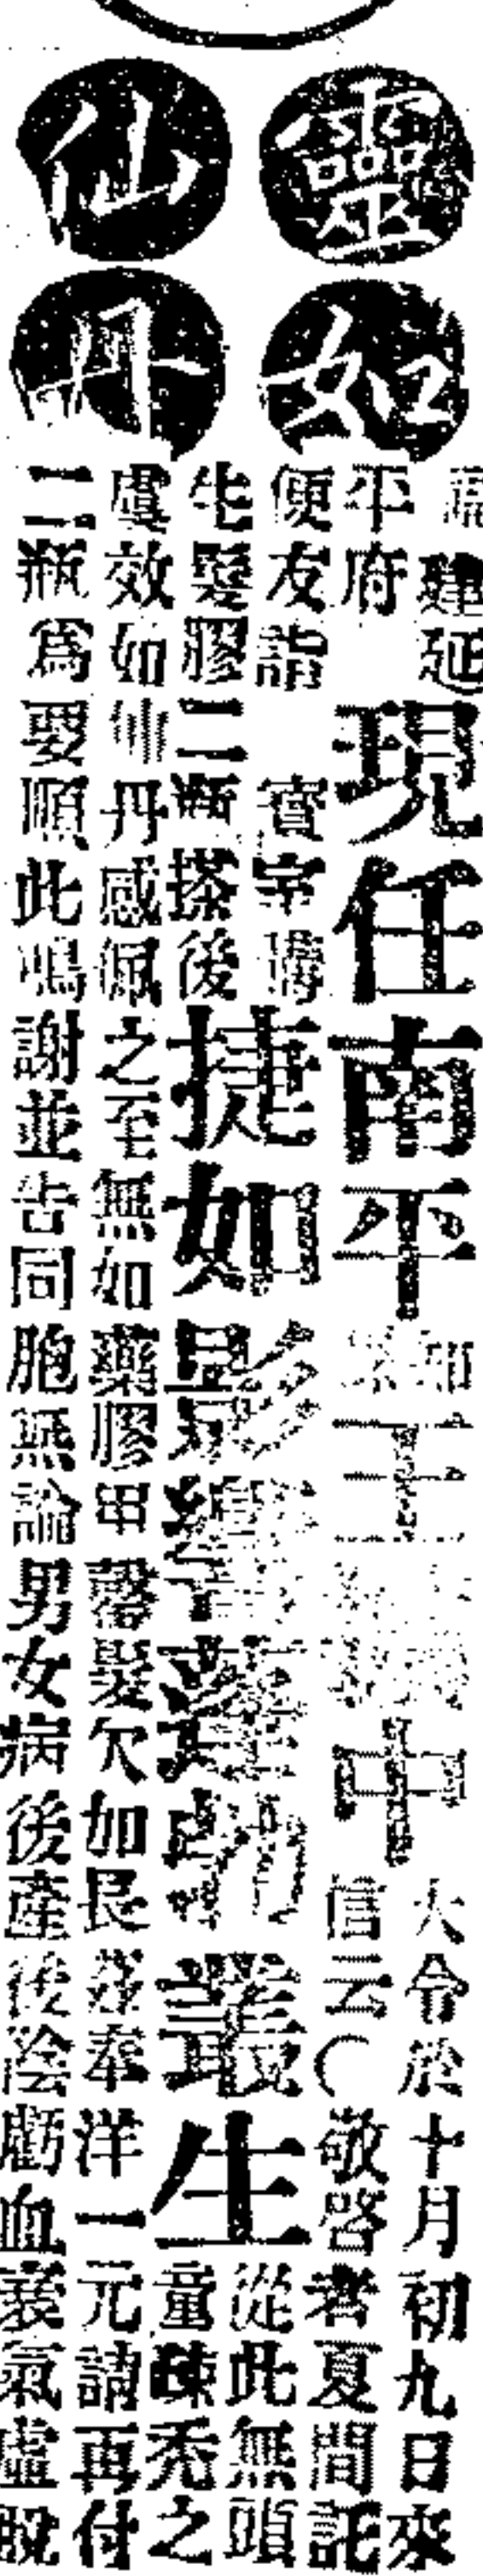 靈如
仙丹
建延
平府
現任南平
王
中
大令於十月初九日來
信云（敬啓者夏間託
便友詣 寶字購
生髮膠二瓶搽後
捷如影響蓬勃叢生
從此無頭
童疎禿之
虞效如仙丹感佩之至無如藥膠用罄髮欠加長茲奉洋一元請再付
二瓶爲要順此鳴謝並告同胞無論男女病後產後陰虧血衰氣虛脫